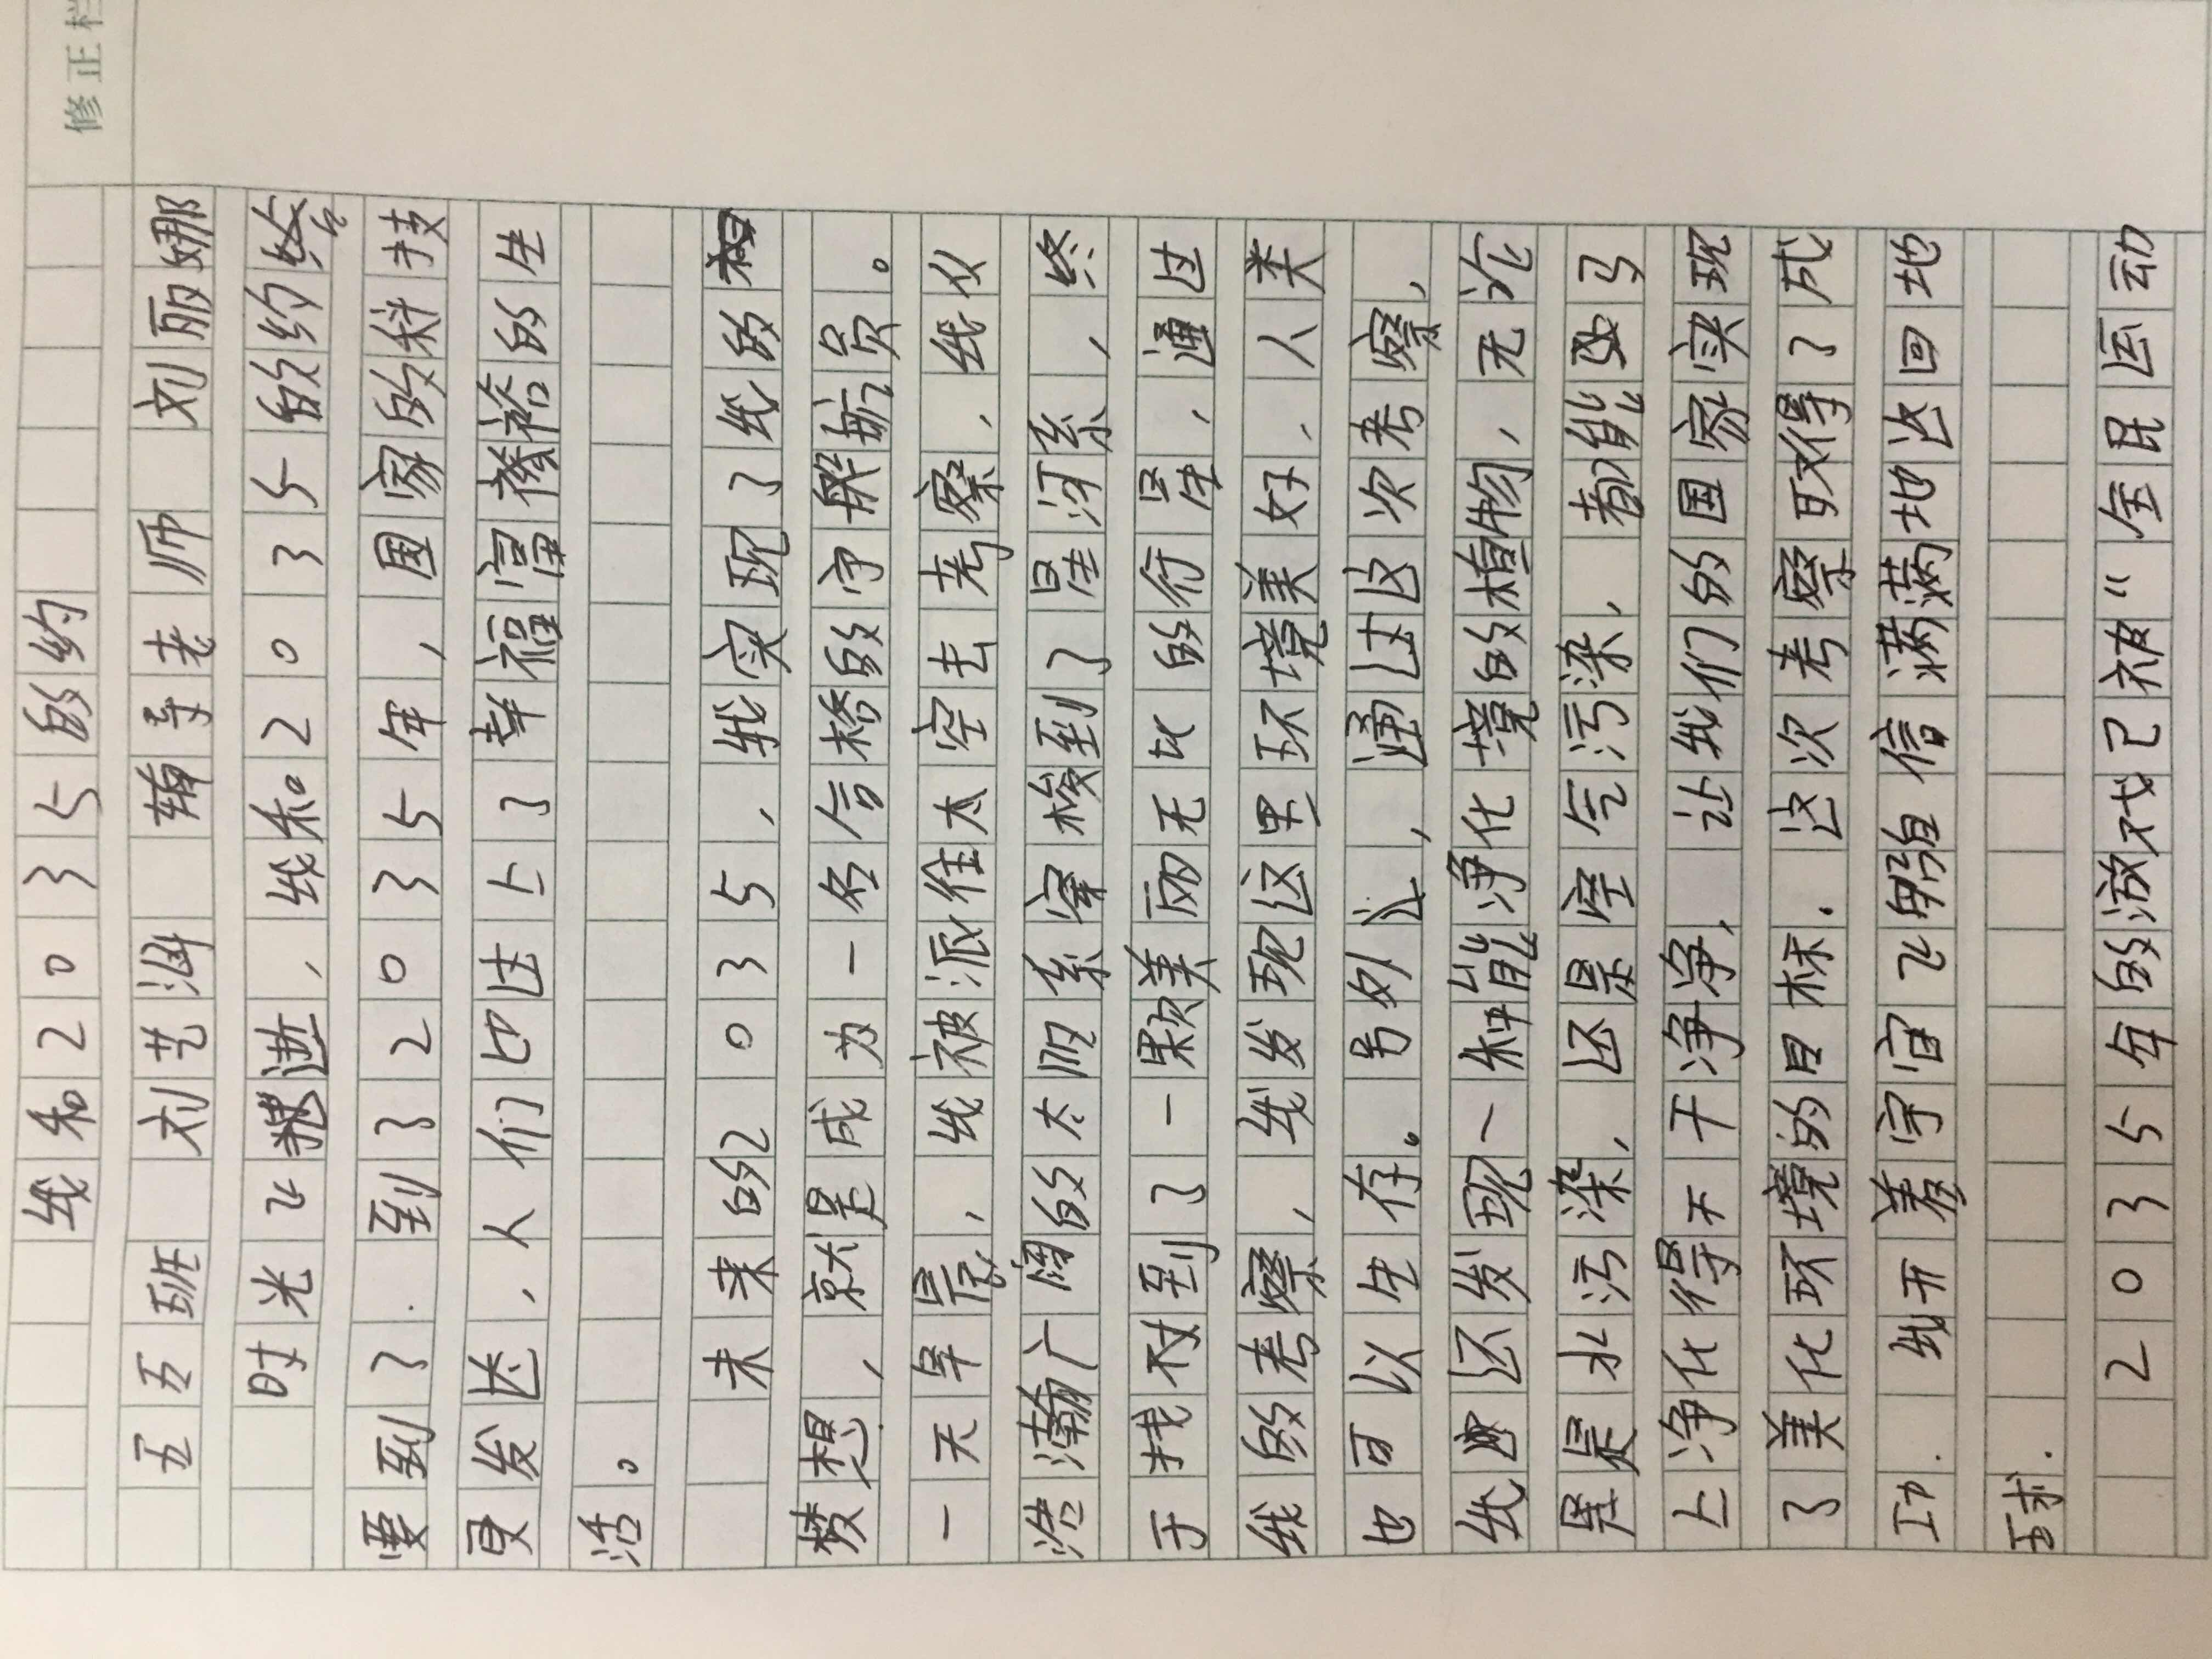 修正栏
我和2035的约
五五班 刘艺涵 辅导老师 刘丽娜
时光飞逝，我和2035的约终
要到了.到32035年，国家的科技
更发达，人们也过上了幸福富裕的生
活。
未来的2035，我实现了我的
梦想，就是成为一名合格的宇航员。
一天早晨，我被派往太空去考察，我从
浩瀚广阔的太阳系穿梭到了星河系，终
于找到了一颗美丽无比的行星，通过
我的考察，我发现这里环境美好，人类
也可以生存。另外，通过这次考察，
我还发现一种能净化境的植物，无论
是水污染，还是空气污染，都能
净化得干干净净，让我们的国家实现
了美化环境的目标.这次考察取得了成
功.我开着宇宙飞船自信满满地返回地
球.
2035年的游戏已被“全民运动